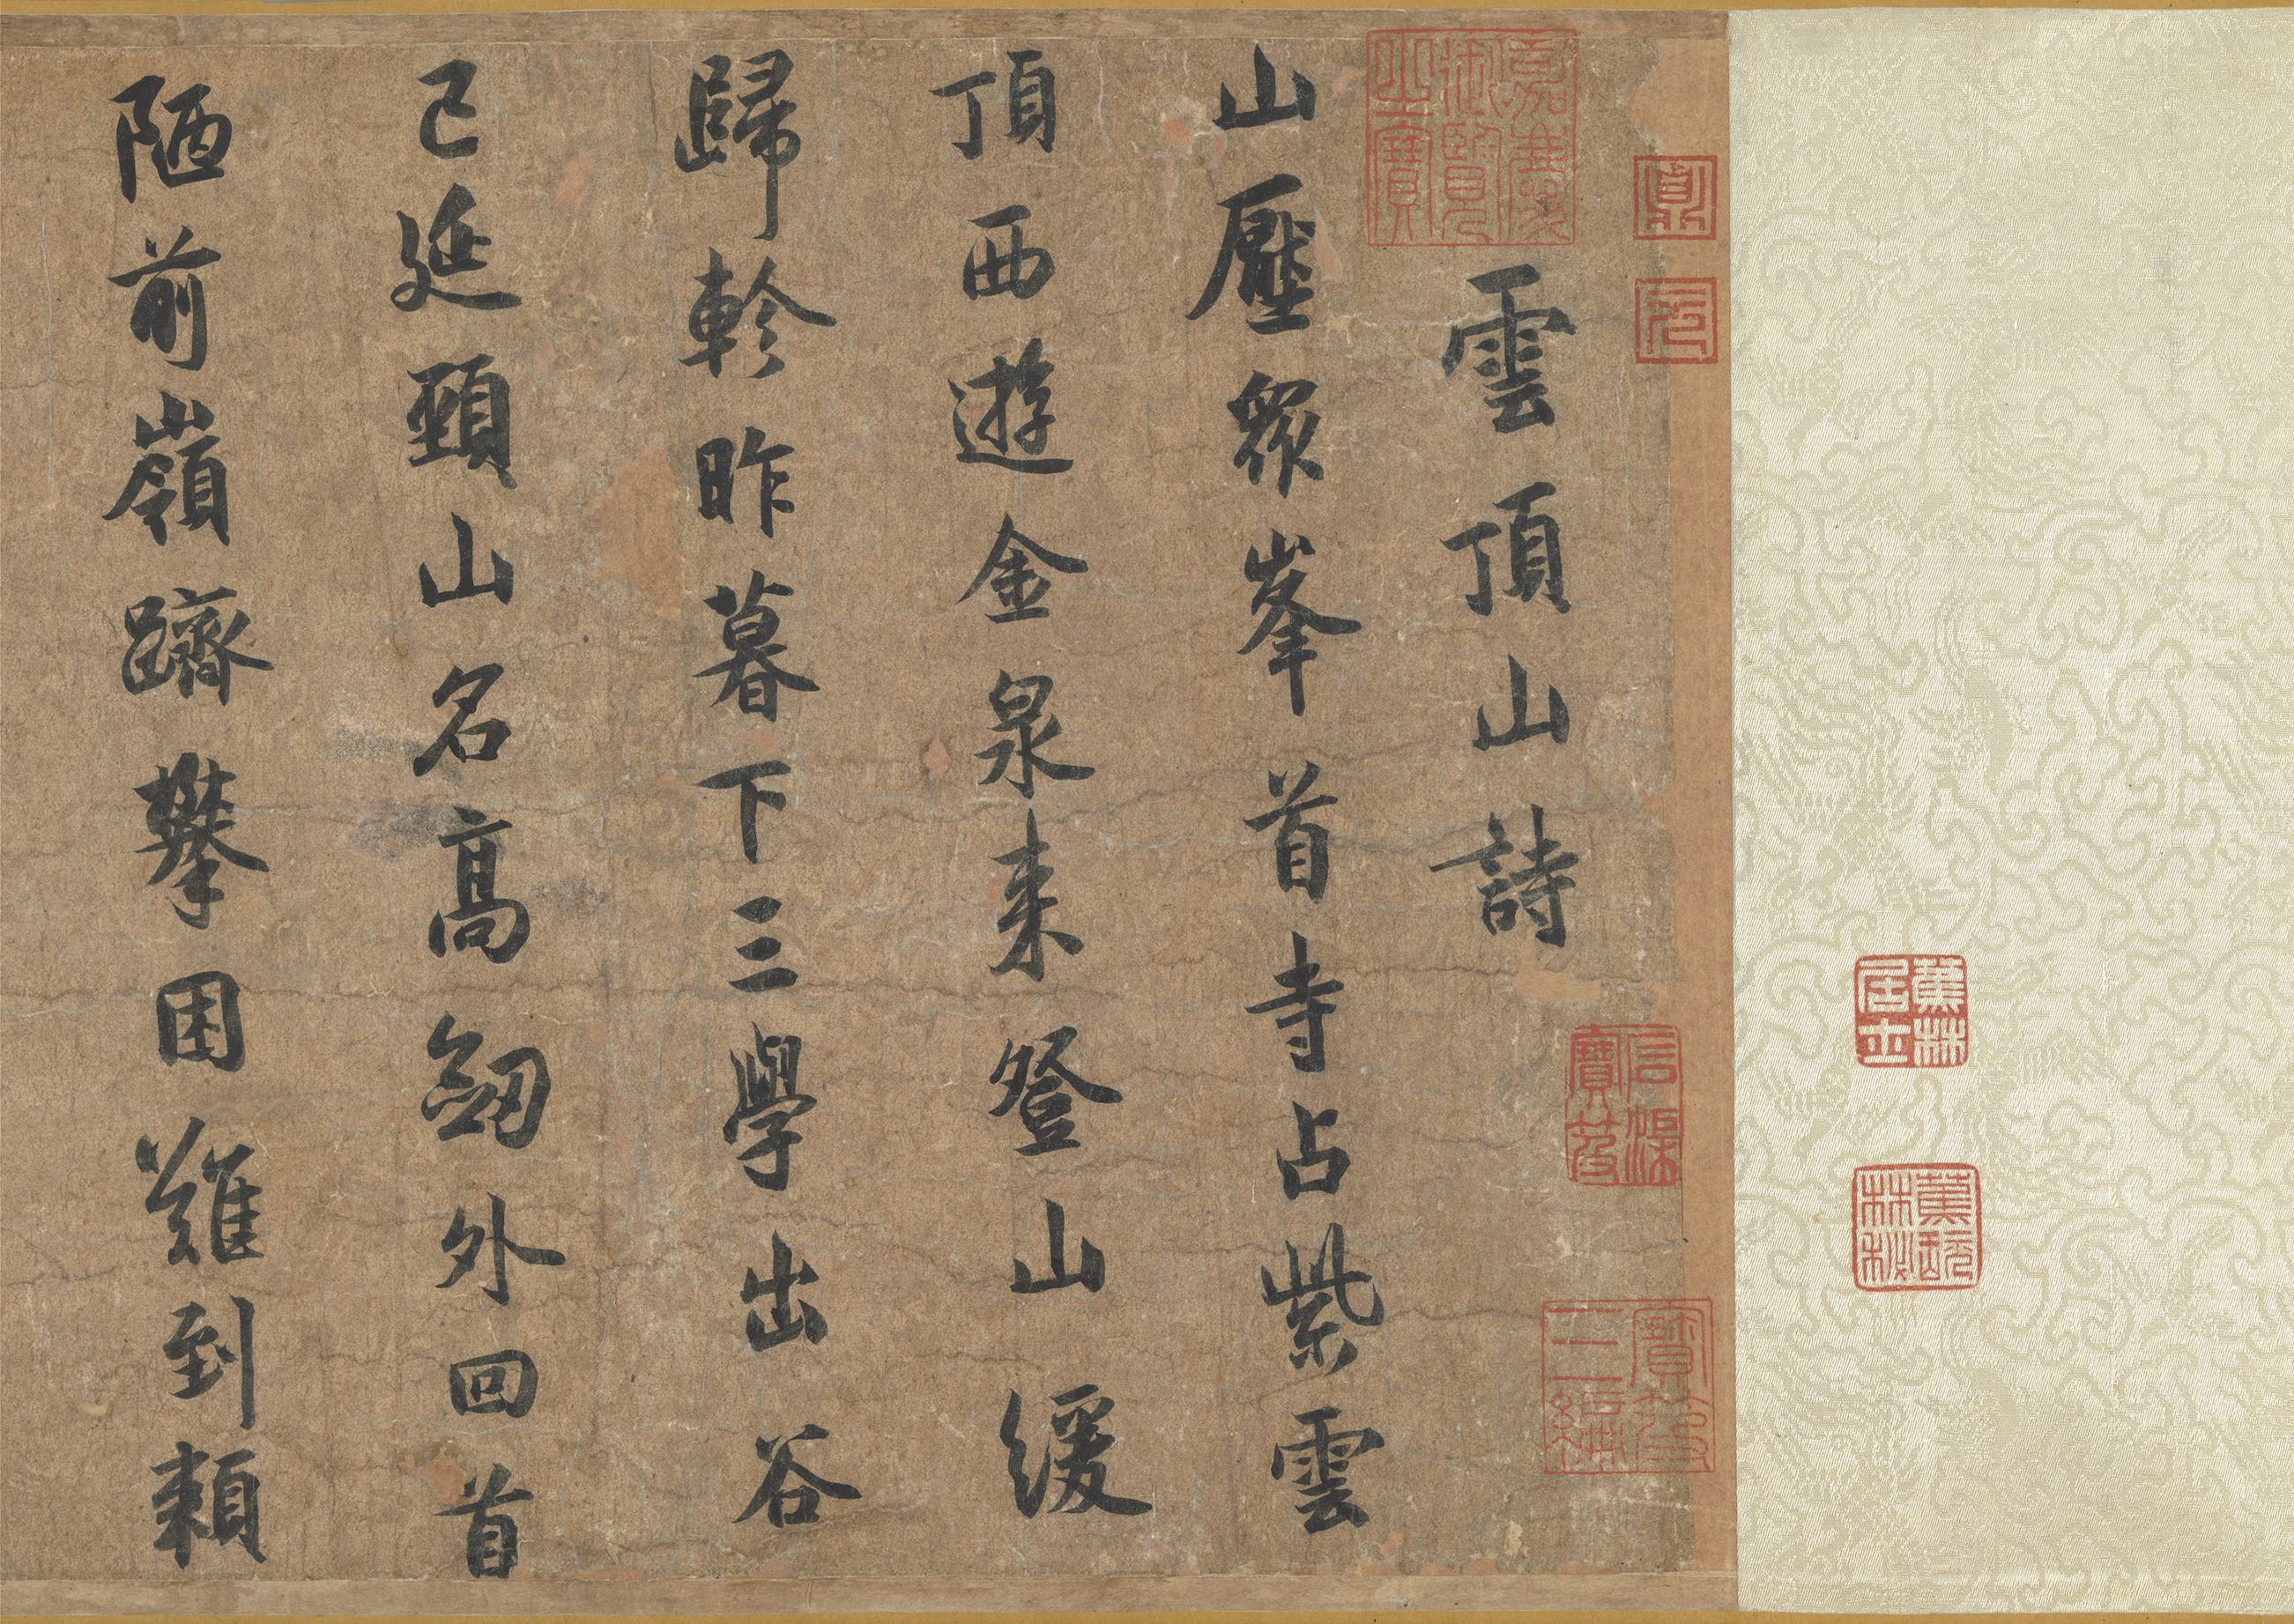 雲頂山詩
山壓眾峯首寺占紫雲
頂西遊金泉来登山緩
歸軫昨暮下三學出谷
已延頸山名高劒外回首
陋前嶺躋攀困難到賴
嘉慶御覽之寶
寶笈三編
蕉林居士